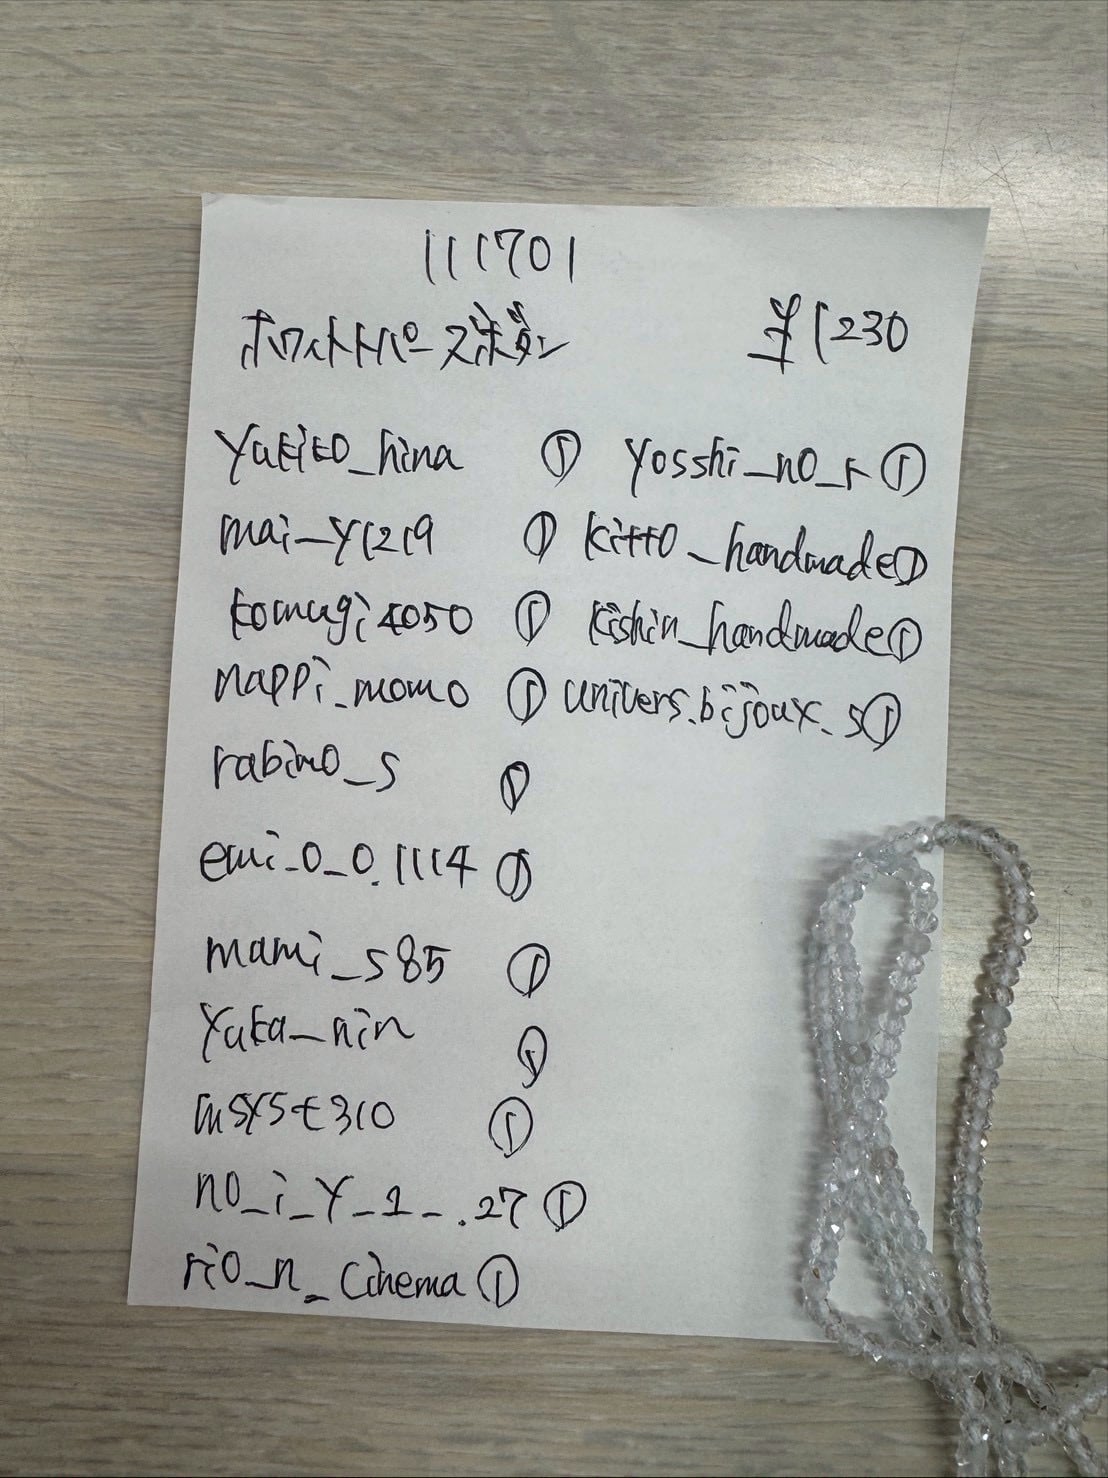 111701
ホワイトトパーズボタン ¥1230
yukito_hina ① yosshi_no_r ①
mai_y1219 ① kitto_handmade ①
komugi4050 ① kishin_handmade ①
nappi_momo ① univers.bijoux_s ①
rabimo_s ①
emi_o_o.1114 ①
mami_s85 ①
yuka_nin ①
msyst310 ①
no_i_y_1_.27 ①
rio_n_cinema ①